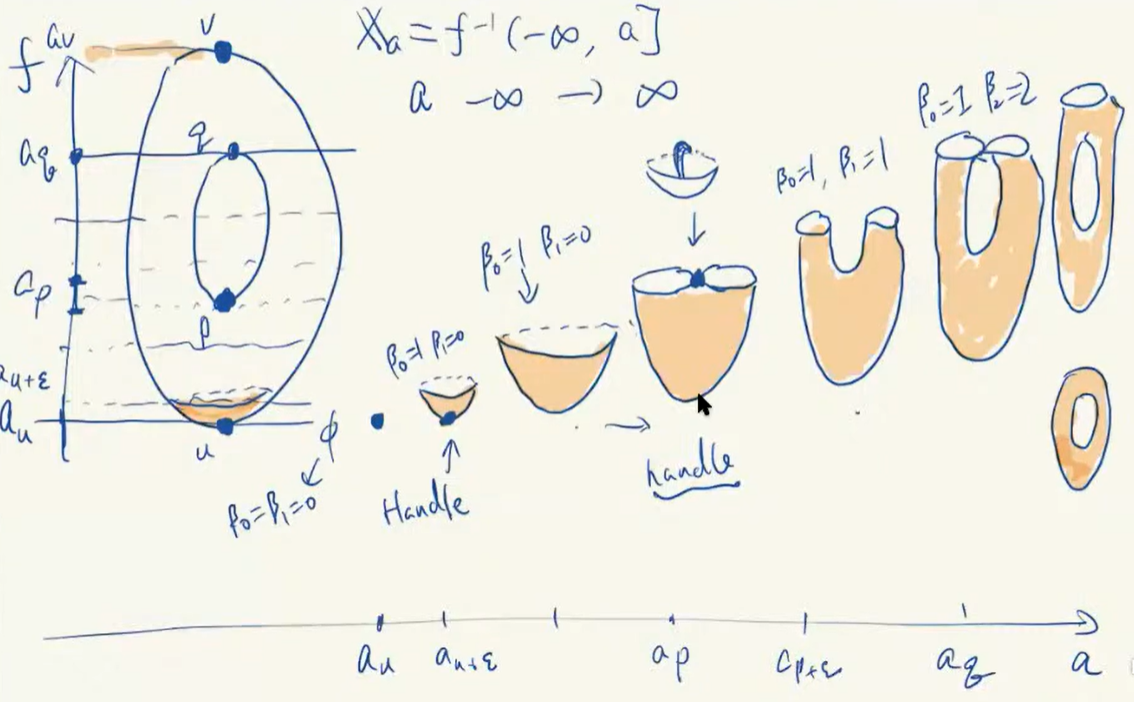 X_a = f^{-1}(-∞, a]
a -∞ → ∞
f
a_v
v
a_q
q
a_p
p
a_{u+ε}
a_u
u
ϕ
β_0=β_1=0
β_0=1 β_1=0
Handle
β_0=1 β_1=0
handle
β_0=1, β_1=1
β_0=1 β_2=2
a_u a_{u+ε} a_p c_{p+ε} a_q a